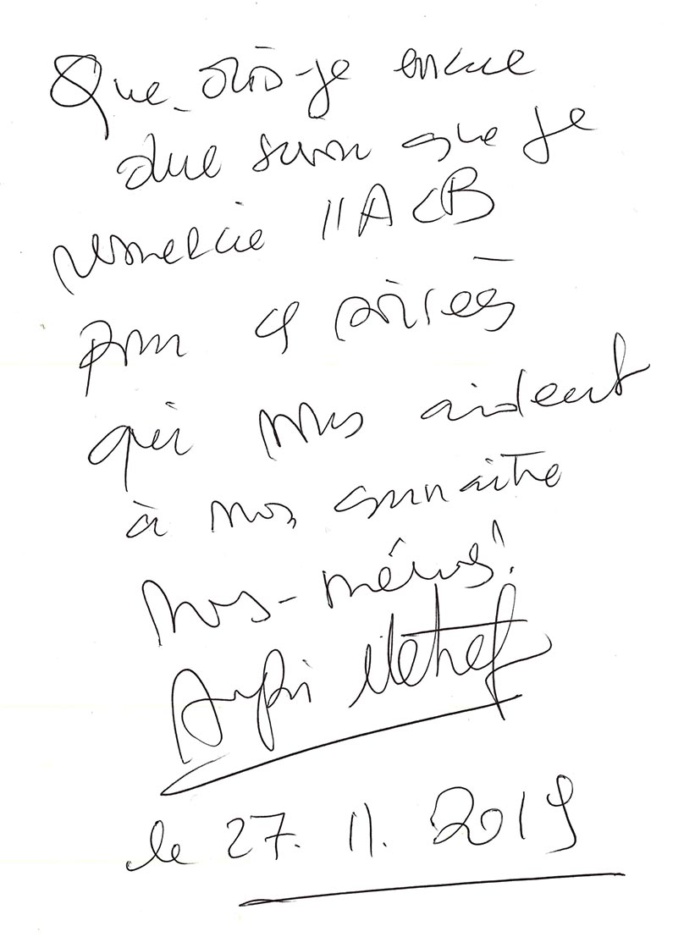 Que dois-je encore
dire sinon que je
remercie l'ACB
pour ces soirées
qui nous aident
à nous connaître
nous-mêmes!
Arezki Metref
le 27.11.2019